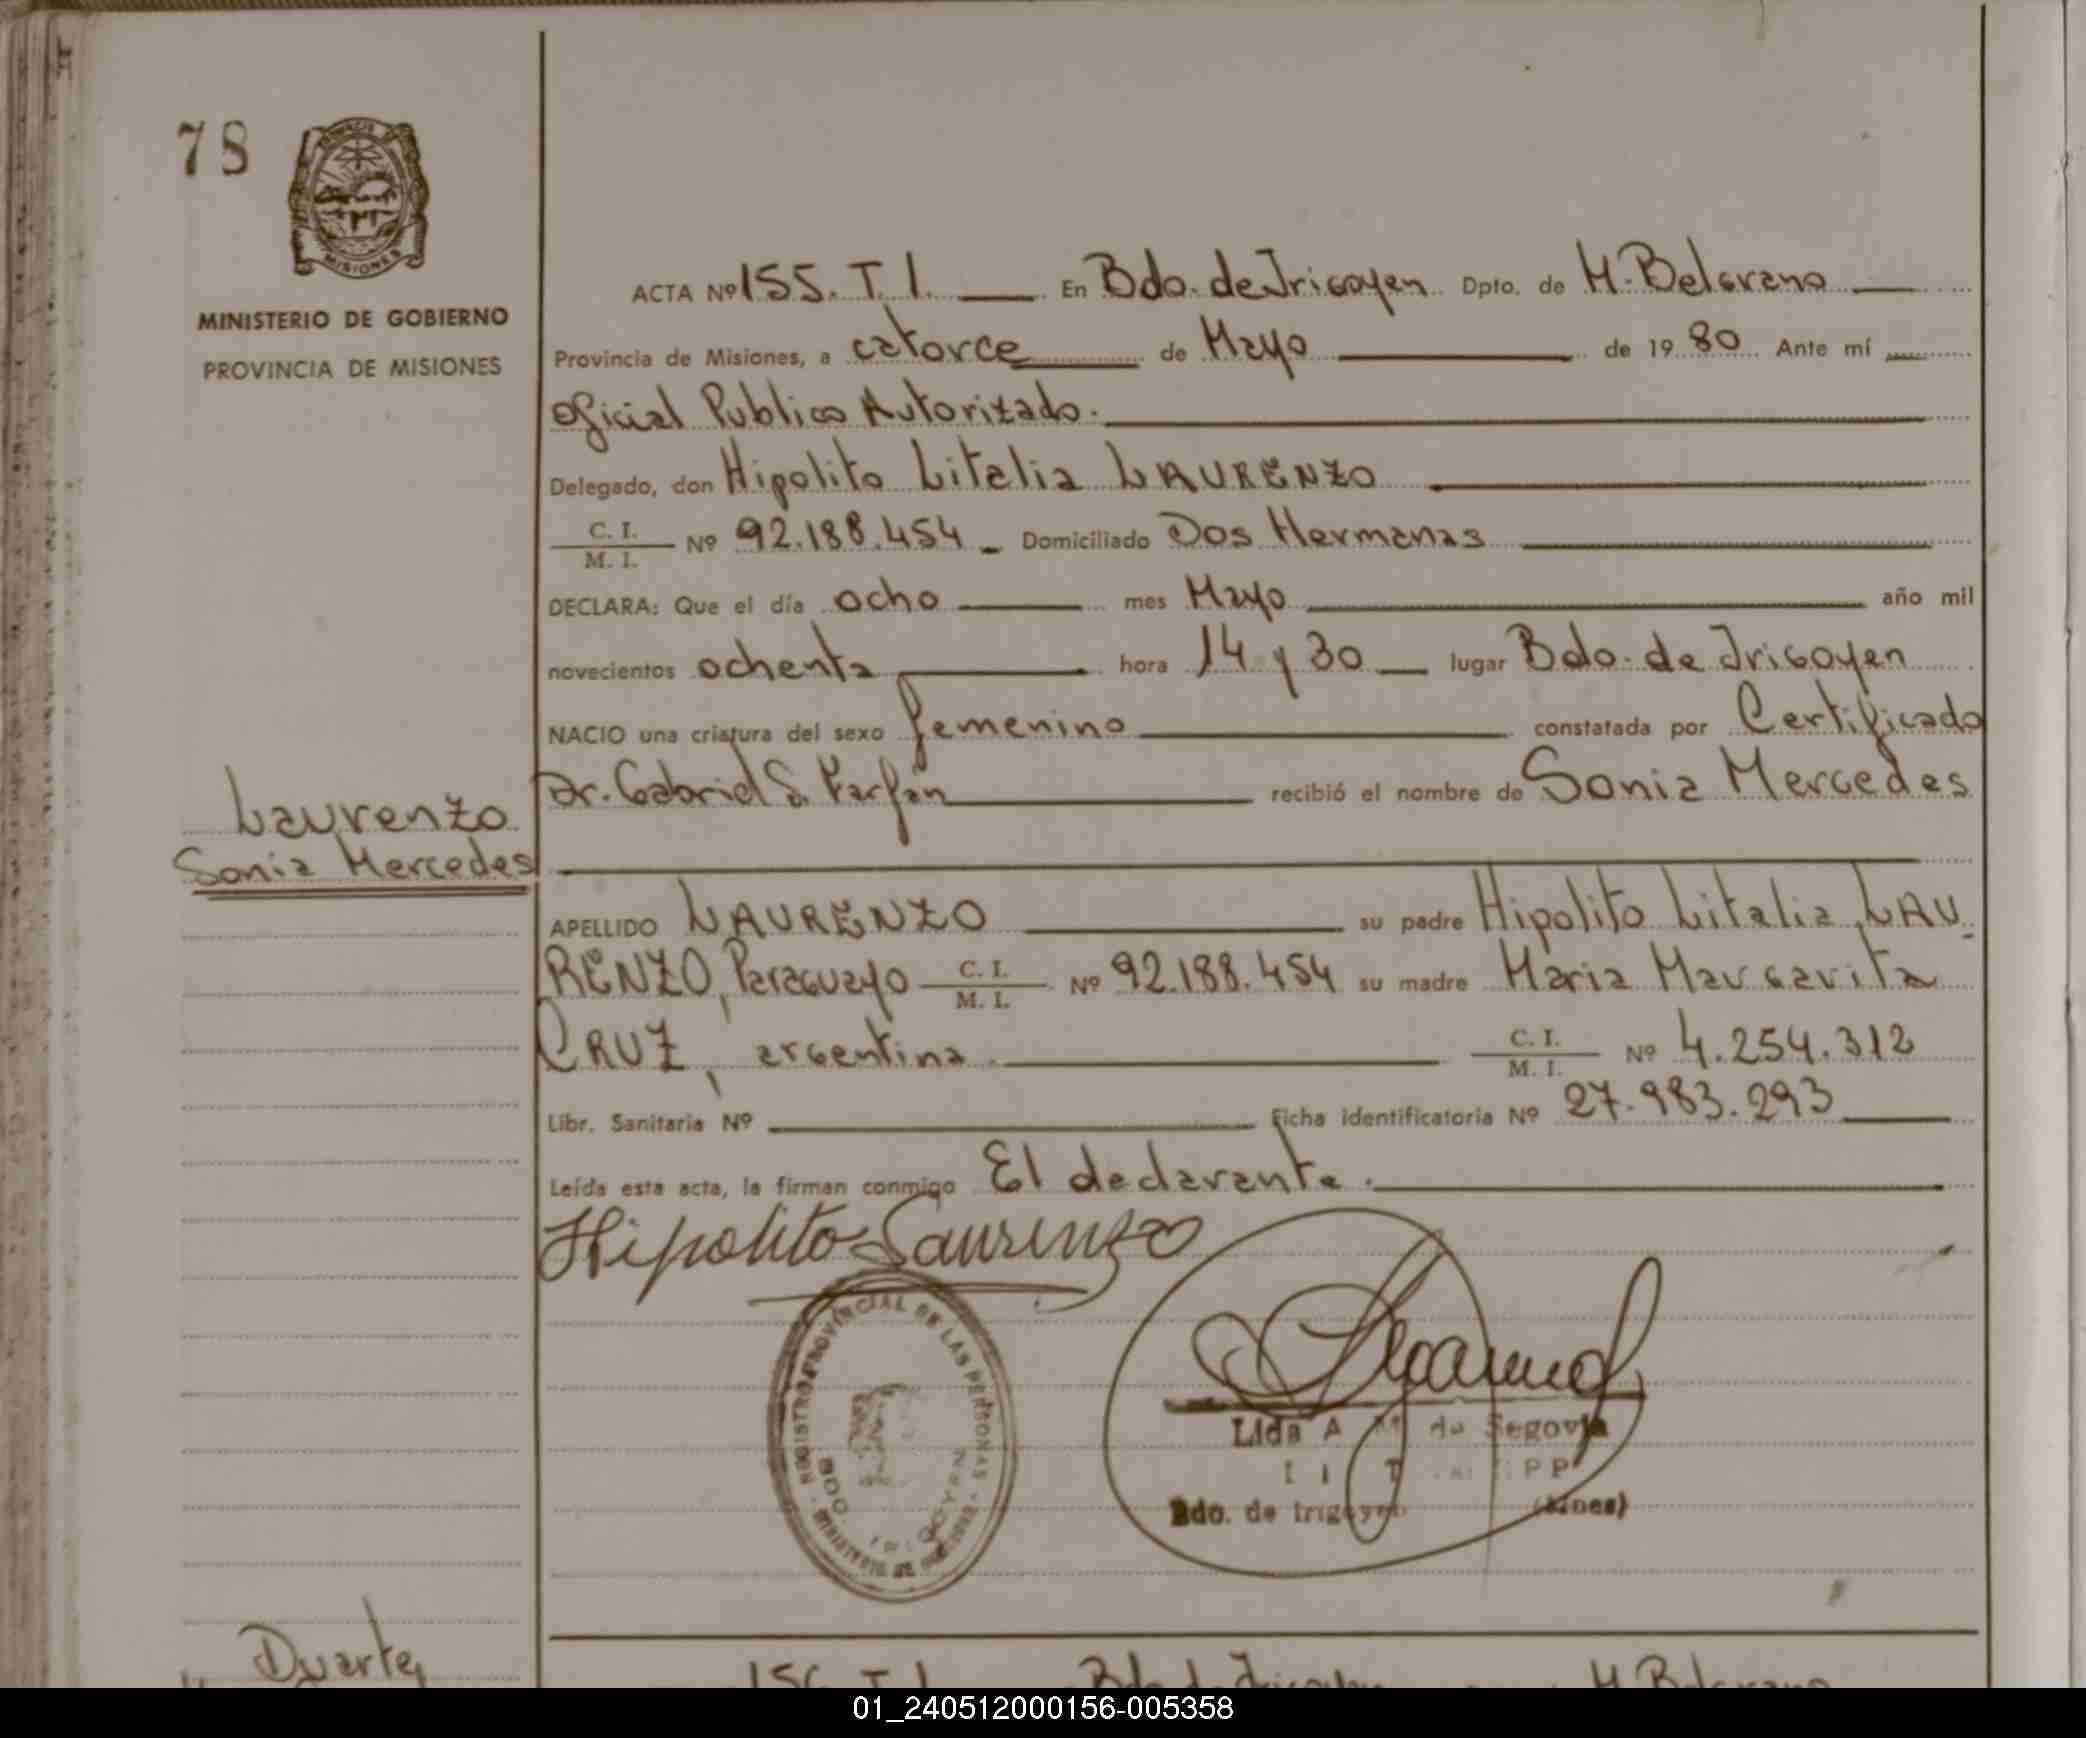 78
MISIONES
MINISTERIO DE GOBIERNO
PROVINCIA DE MISIONES
ACTA Nº 155. T. I. En Bdo. de Irigoyen Dpto. de M. Belgrano
Provincia de Misiones, a catorce de Mayo de 19 80 Ante mí
Oficial Publico Autorizado.
Delegado, don Hipolito Litalia LAURENZO
C. I. / M. I. Nº 92.188.454 Domiciliado Dos Hermanas
DECLARA: Que el día ocho mes Mayo año mil
novecientos ochenta hora 14 y 30 lugar Bdo. de Irigoyen
NACIO una criatura del sexo femenino constatada por Certificado
Dr. Gabriel S. Farfán recibió el nombre de Sonia Mercedes
Laurenzo
Sonia Mercedes
APELLIDO LAURENZO su padre Hipolito Litalia LAU-
RENZO, Paraguayo C. I. / M. I. Nº 92.188.454 su madre Maria Margarita
CRUZ, argentina C. I. / M. I. Nº 4.254.312
Libr. Sanitaria Nº Ficha identificatoria Nº 27.983.293
Leída esta acta, la firman conmigo El declarante.
Hipolito Laurenzo
REGISTRO PROVINCIAL DE LAS PERSONAS
BDO. IRIGOYEN
MINISTERIO DE GOBIERNO
Lida A M de Segovia
Bdo. de Irigoyen (Mnes)
Duarte,
156. T. I. Bdo. de Irigoyen M. Belgrano
01_240512000156-005358